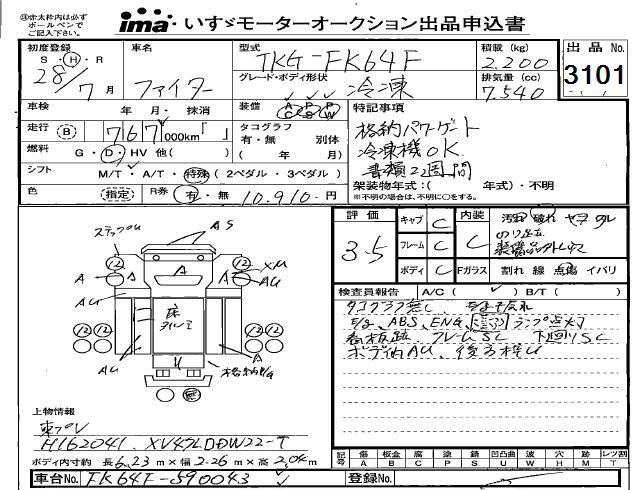 ㊟太枠内は必ず
ボールペンで
ご記入下さい。
ima いすゞモーターオークション出品申込書
初度登録 車名 型式 積載 (kg) 出品No.
S・H・R TKG-FK64F 2.200
28/7月 ファイター グレード・ボディ形状 冷凍 排気量(cc) 7.540 3101
車検 年 月・抹消 装備 AC PS PW 特記事項
走行 B 767,000km「 」 タコグラフ 有・無 別体 格納パワーゲート
燃料 G・D・HV 他( ) ( 年 月) 冷凍機OK
シフト M/T・A/T・特殊 (2ペダル・3ペダル) 書類2週間
架装物年式:( 年式)・不明
※不明の場合は、不明に○をする。
色 (指定) R券 有・無 10.910円
評価 3.5 キャブ C 内装 C 汚れ 破れ ヤニ
フレーム C
ボディ C Fガラス 割れ 線 点傷 イバリ
検査員報告 A/C( ) B/T( )
タコグラフ無し
ABS、ENG ランプ点灯
看板跡 フレームSC 下廻りSC
ボディ内AU
ステップU AS
12 12 XU
A A A
AU AU
床
12 12 12 12
AU A
格納P/G
上物情報
東プレ
H162041 XV47LDDW22-T
ボディ内寸約 長 6.23 m×幅 2.26 m×高 2.04 m
記号 傷 A 板金 B 腐食 C 塗 P 塗 S 凹凸曲 U 波 W 穴 H 跡 M レツ割 T
車台No. FK64F-590043 登録No.